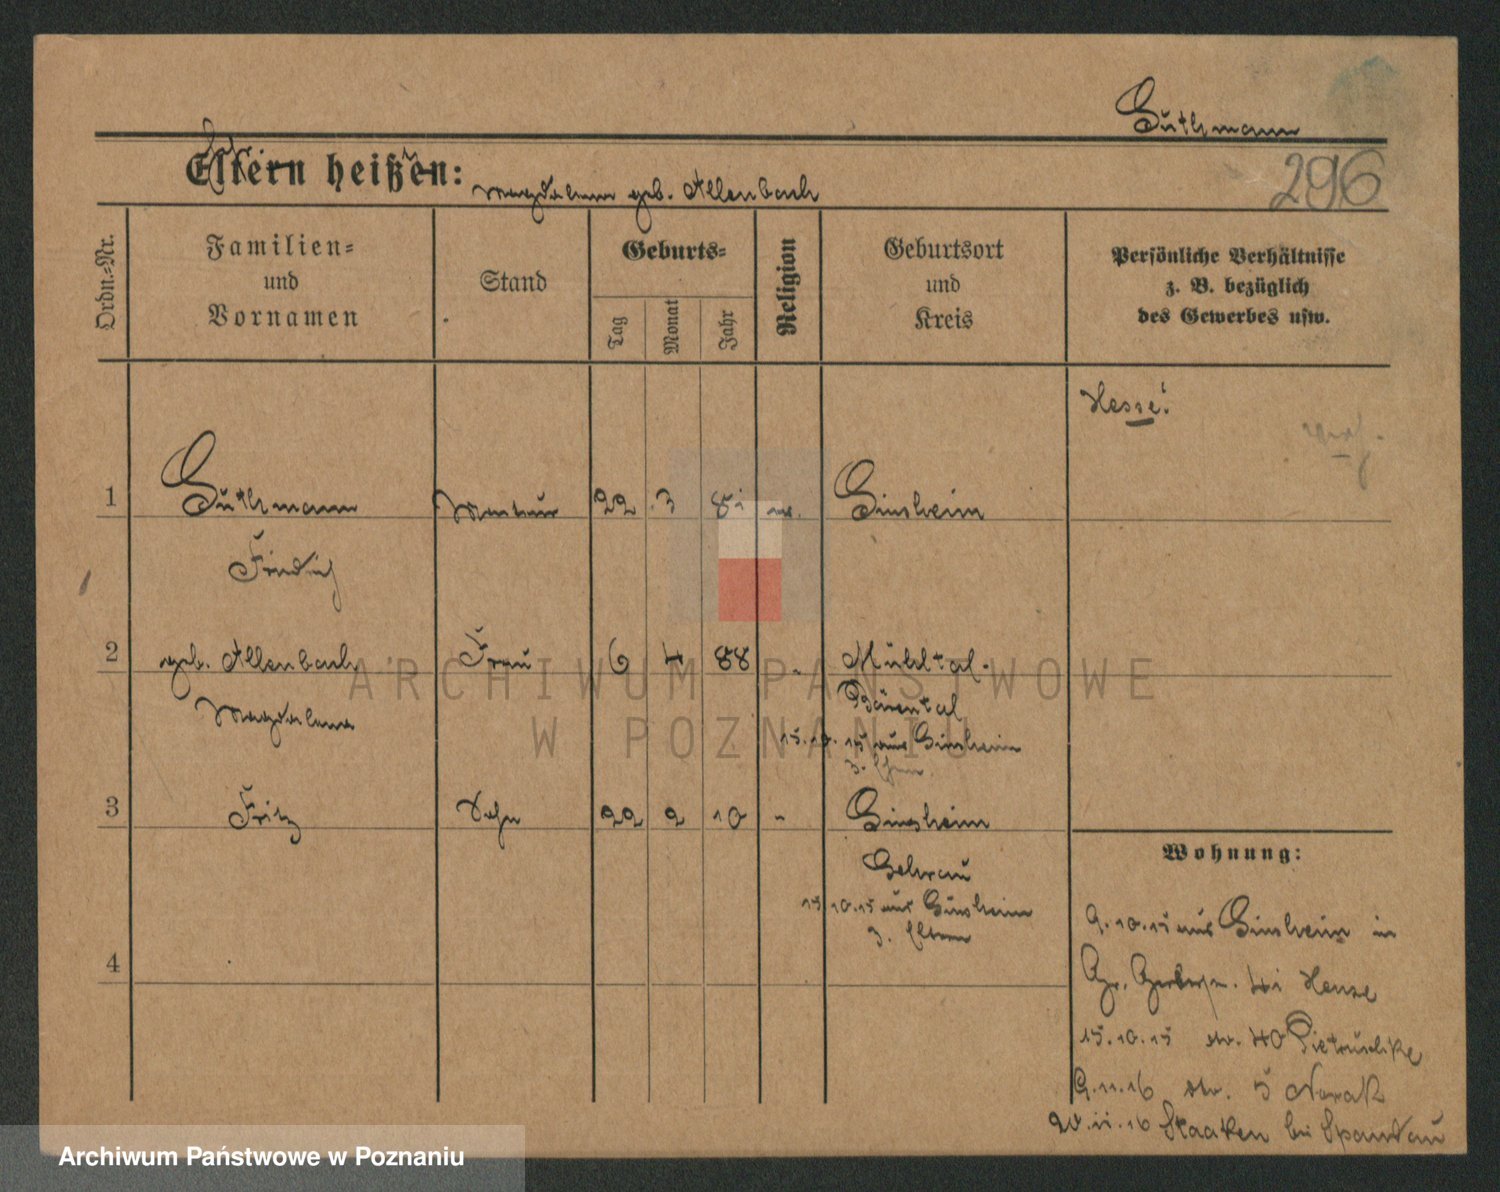 Guthmann
296
Eltern heißen:
Magdalena geb. Allenbach
Ordn.=Nr.
Familien=
und
Vornamen
Stand
Geburts=
Tag
Monat
Jahr
Religion
Geburtsort
und
Kreis
Persönliche Verhältnisse
z. B. bezüglich
des Gewerbes usw.
Hesse!
1 Guthmann Monteur 22 3 81 ev. Ginsheim
Friedrich
2 geb. Allenbach Frau 6 4 88 " Mühltal-
Magdalena Bärental
15.10.15 aus Ginsheim
z. Ehem.
3 Fritz Sohn 22 2 10 " Ginsheim
Gehrau
15.10.15 aus Ginsheim
z. Eltern
4
Wohnung:
9.10.15 aus Ginsheim in
Gr. 41 Hense
15.10.15 str. 40 Pietruschke
9.11.16 str. 5 Nowak
20.11.16 Staaken bei Spandau
ARCHIWUM PAŃSTWOWE
W POZNANIU
Archiwum Państwowe w Poznaniu